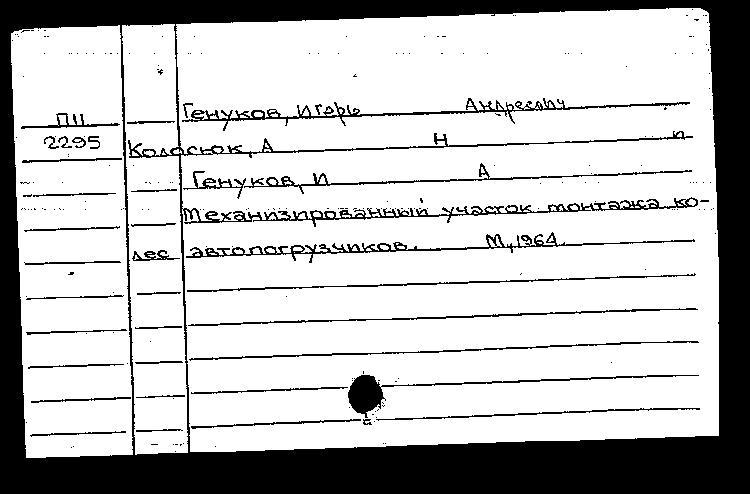 П11 Генуков, Игорь Андреевич
2295 Колосюк, А Н п
Генуков, И А
Механизированный участок монтажа ко-
лес автопогрузчиков. М, 1964.